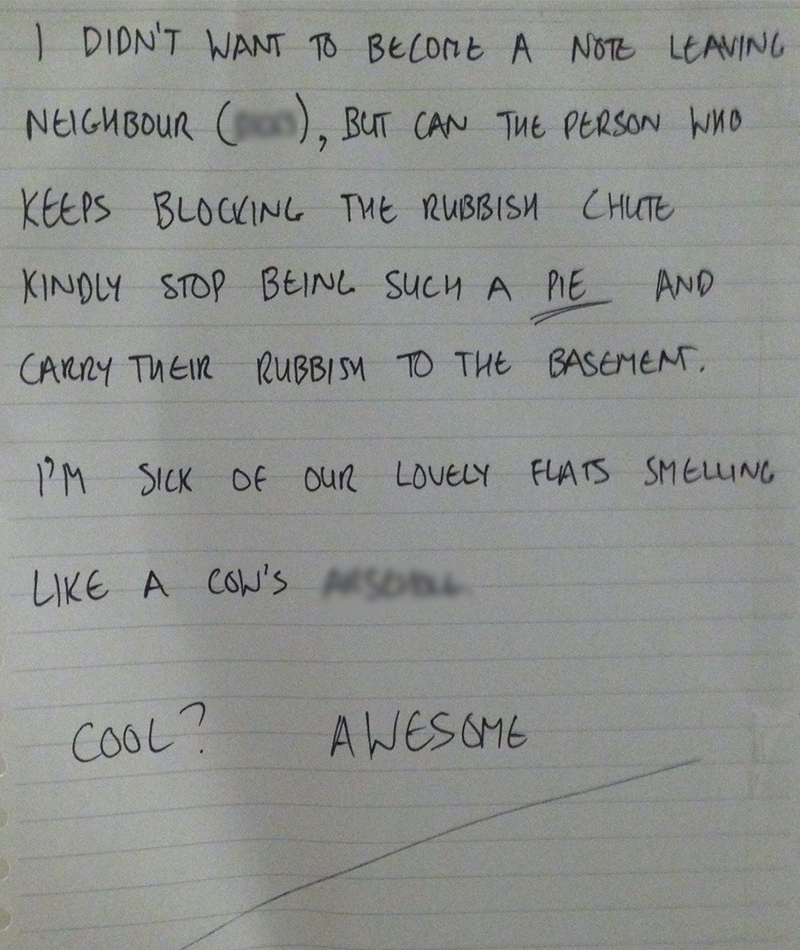 I DIDN'T WANT TO BECOME A NOTE LEAVING
NEIGHBOUR (), BUT CAN THE PERSON WHO
KEEPS BLOCKING THE RUBBISH CHUTE
KINDLY STOP BEING SUCH A PIE AND
CARRY THEIR RUBBISH TO THE BASEMENT.
I'M SICK OF OUR LOVELY FLATS SMELLING
LIKE A COW'S
COOL? AWESOME